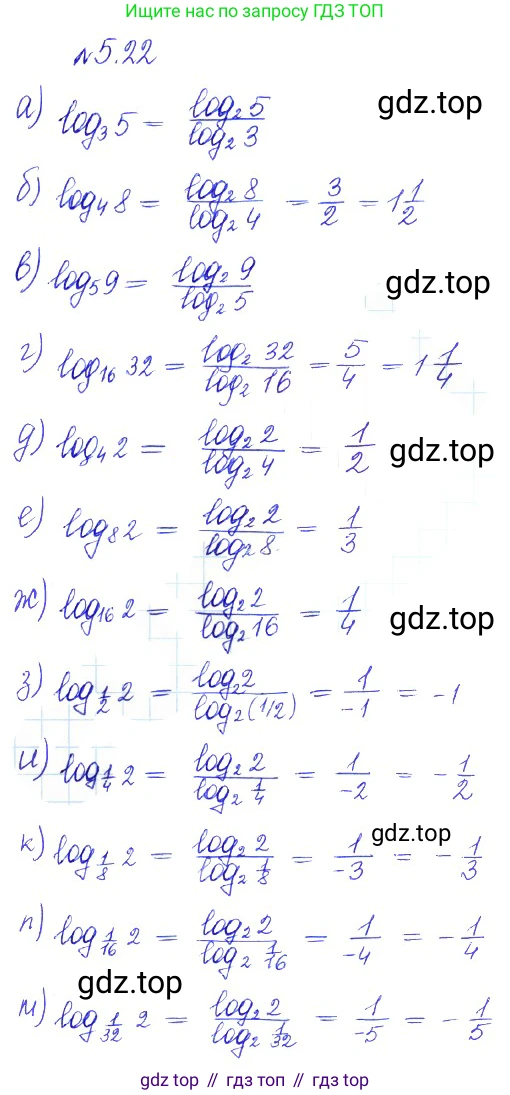 Ищите нас по запросу ГДЗ ТОП
№5.22
а) log₃5 = log₂5 / log₂3
gdz.top
б) log₄8 = log₂8 / log₂4 = 3/2 = 1 1/2
в) log₅9 = log₂9 / log₂5
gdz.top
г) log₁₆32 = log₂32 / log₂16 = 5/4 = 1 1/4
д) log₄2 = log₂2 / log₂4 = 1/2
gdz.top
е) log₈2 = log₂2 / log₂8 = 1/3
ж) log₁₆2 = log₂2 / log₂16 = 1/4
gdz.top
з) log_{1/2} 2 = log₂2 / log₂(1/2) = 1/-1 = -1
и) log_{1/4} 2 = log₂2 / log₂ 1/4 = 1/-2 = -1/2
gdz.top
к) log_{1/8} 2 = log₂2 / log₂ 1/8 = 1/-3 = -1/3
л) log_{1/16} 2 = log₂2 / log₂ 1/16 = 1/-4 = -1/4
gdz.top
м) log_{1/32} 2 = log₂2 / log₂ 1/32 = 1/-5 = -1/5
gdz.top // гдз топ // гдз.топ